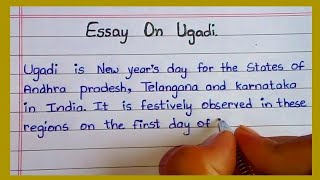 Essay On Ugadi.
Ugadi is New year's day for the States of
Andhra pradesh, Telangana and karnataka
in India. It is festively observed in these
regions on the first day of